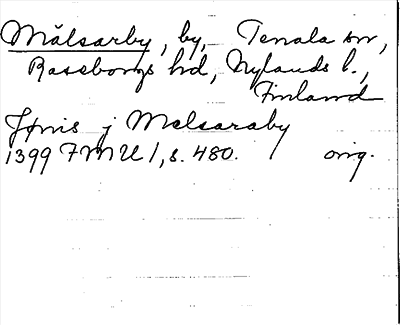 Målsarby, by, Tenala sn,
Raseborgs hd, Nylands l.,
Finland
Jønis j Melsaraby
1399 FMU I, s. 480. orig.